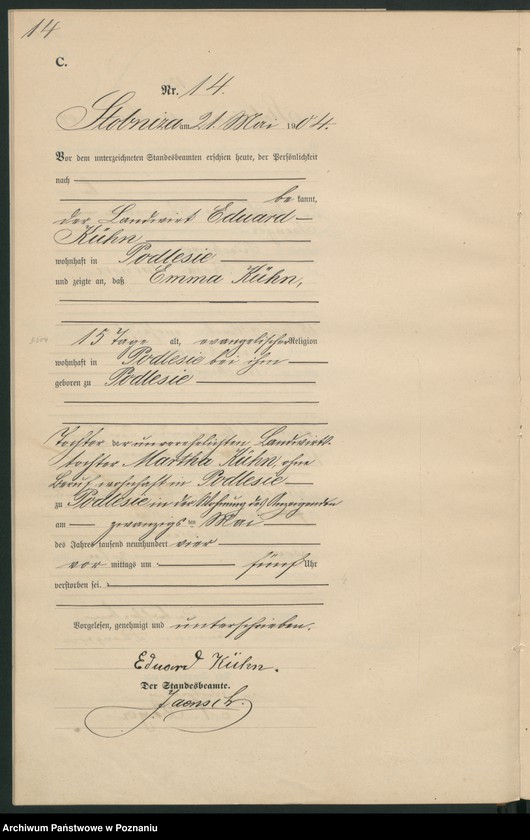 14
C.
Nr. 14.
Slobnica am 21. Mai 1904.
Vor dem unterzeichneten Standesbeamten erschien heute, der Persönlichkeit
nach
be kannt,
der Landwirt Eduard
Kühn
wohnhaft in Podlesie
und zeigte an, daß Emma Kühn,
15 Tage alt, evangelischer Religion
wohnhaft in Podlesie bei ihm
geboren zu Podlesie
Tochter der unverehelichten Landwirts-
tochter Martha Kühn, ohne
Beruf wohnhaft in Podlesie
zu Podlesie in der Wohnung des Anzeigenden
am zwanzigs ten Mai
des Jahres tausend neunhundert vier
vor mittags um fünf Uhr
verstorben sei.
Vorgelesen, genehmigt und unterschrieben.
Eduard Kühn.
Der Standesbeamte.
Jaensch.
Archiwum Państwowe w Poznaniu